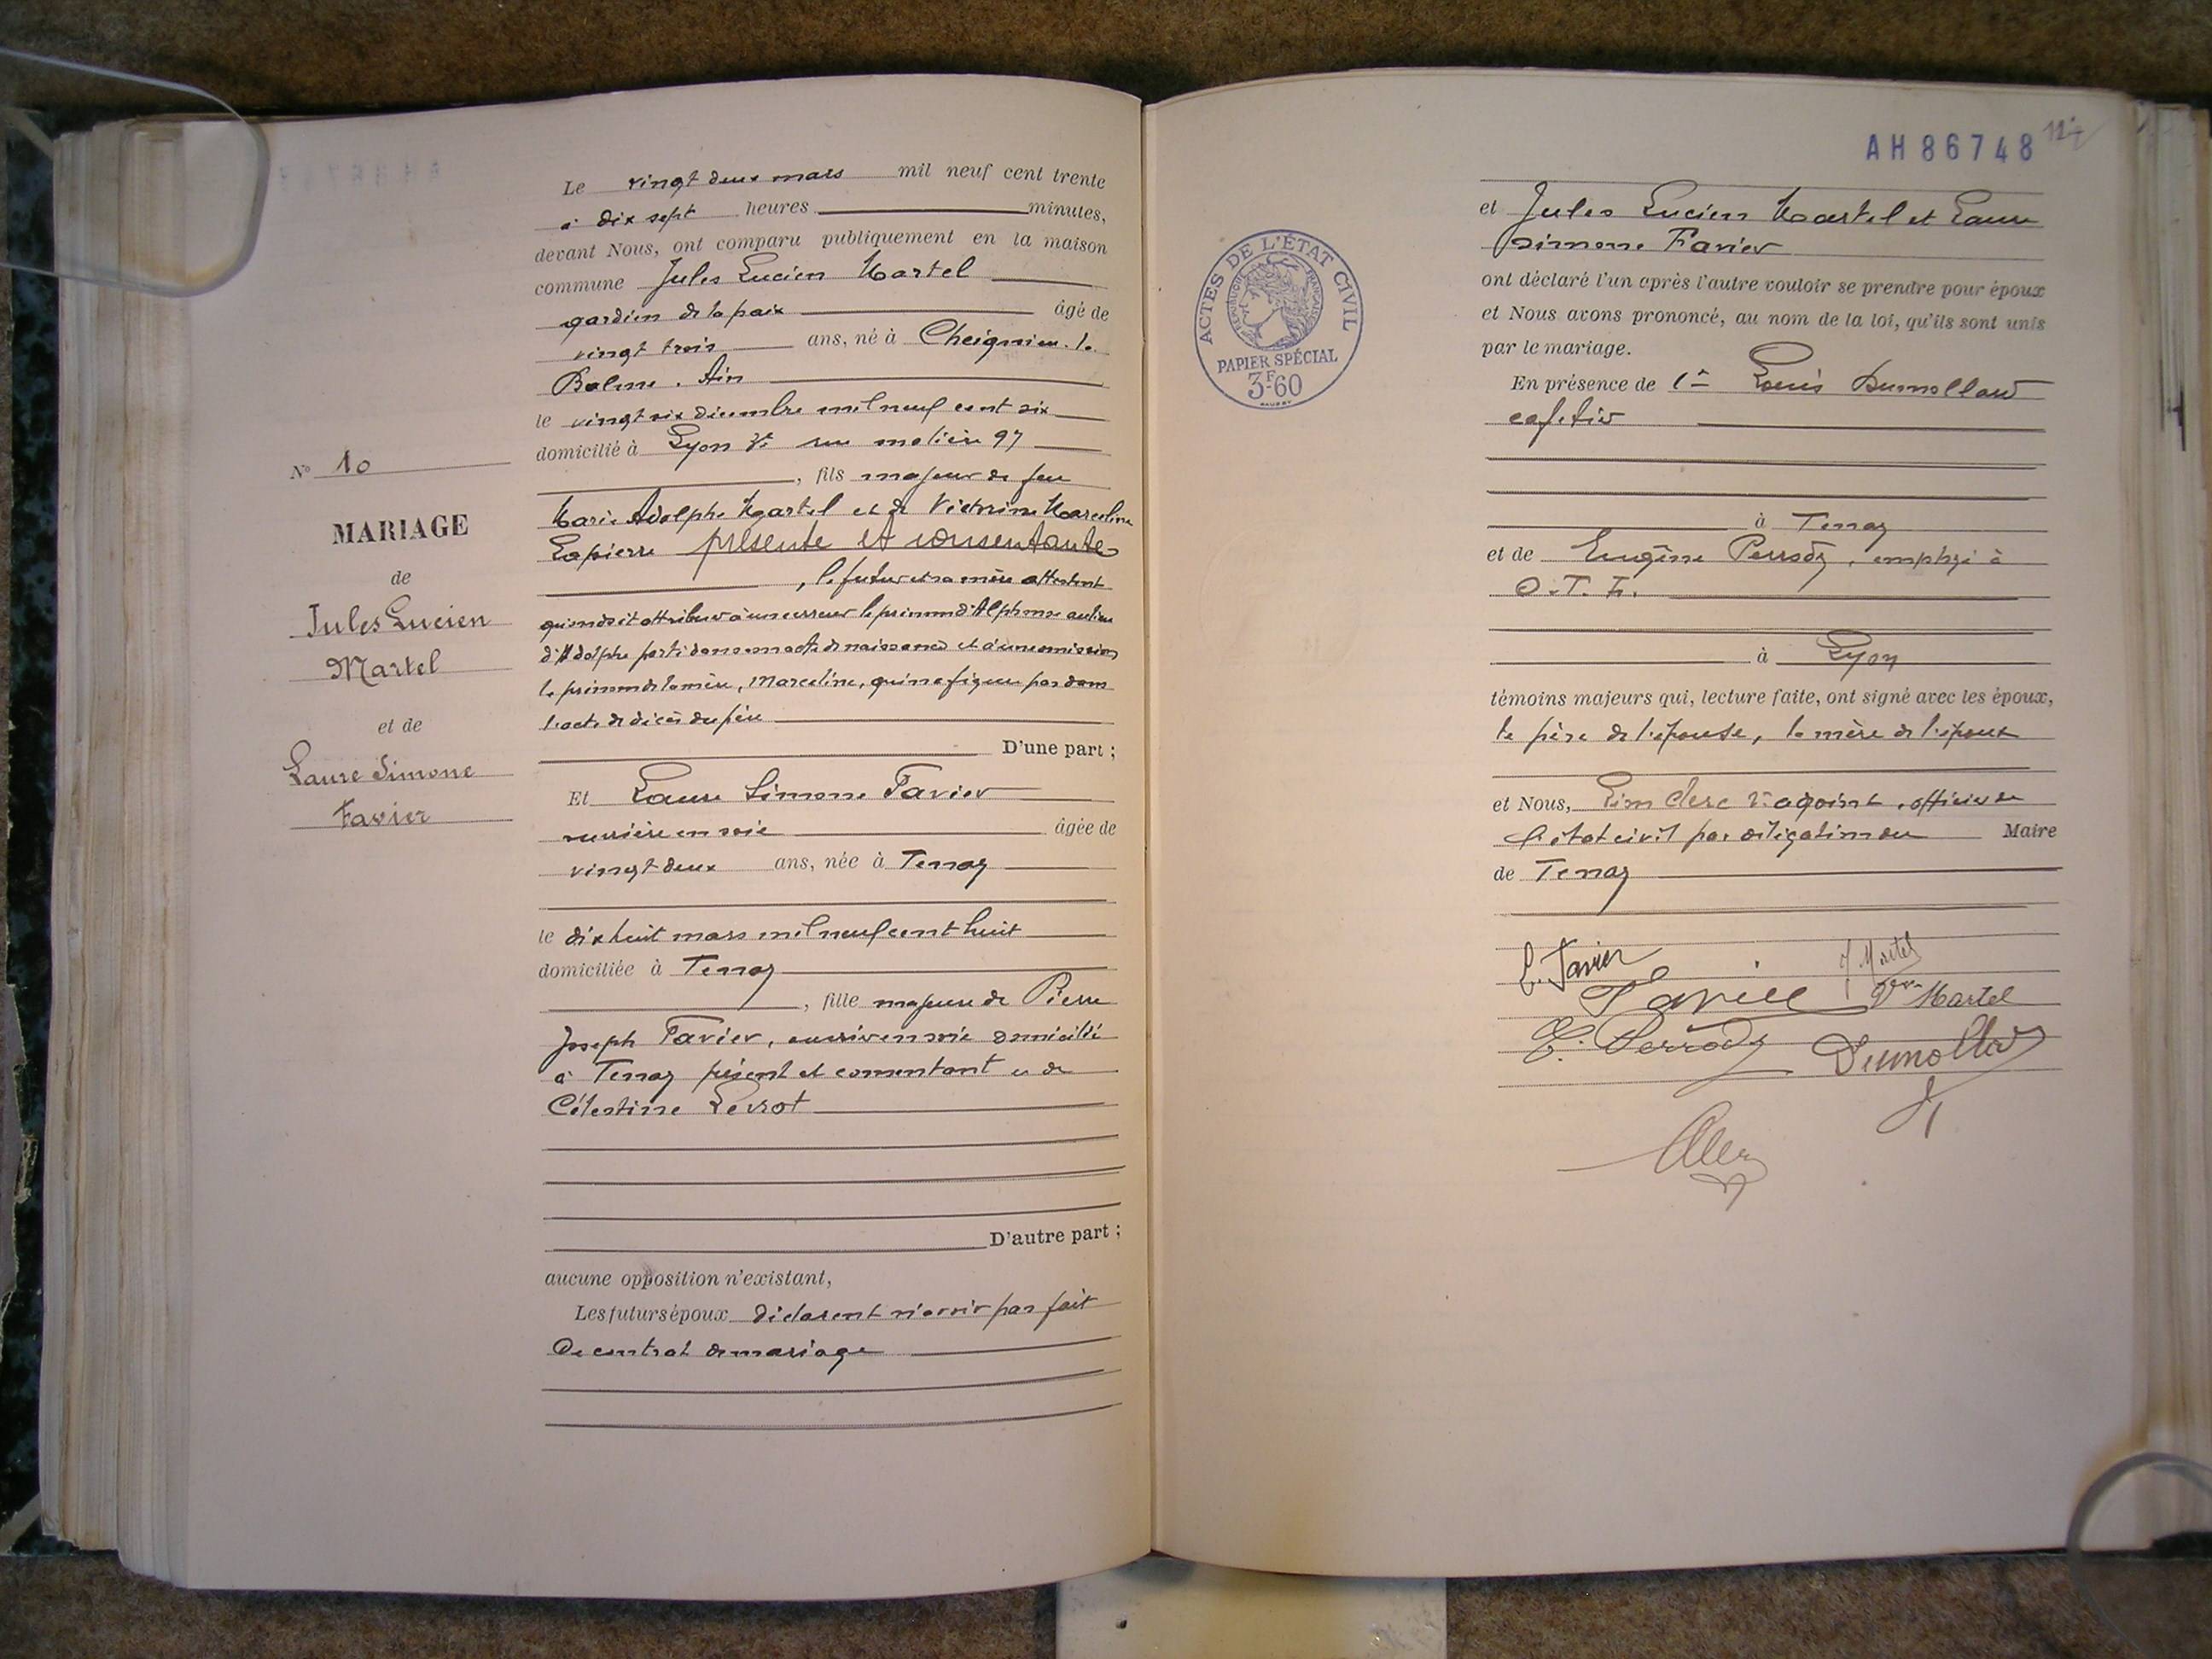 Le vingt deux mars mil neuf cent trente
à dix sept heures minutes,
devant Nous, ont comparu publiquement en la maison
commune Jules Lucien Martel
gardien de la paix âgé de
vingt trois ans, né à Cheignieu-la
Balme. Ain
le vingt six décembre mil neuf cent six
domicilié à Lyon 3e rue molière 97
, fils majeur de feu
Marie Adolphe Martel et de Victorine Marceline
Lapierre présente et consentante
, le futur et sa mère attestent
qu'on doit attribuer à une erreur le prénom d'Alphonse au lieu
d'Adolphe porté dans son acte de naissance et à une omission
le prénom de la mère, Marceline, qui ne figure pas dans
l'acte de décès du père
D'une part ;
N° 10
MARIAGE
de
Jules Lucien
Martel
et de
Laure Simone
Favier
Et Laure Simone Favier
ouvrière en soie âgée de
vingt deux ans, née à Tenay
le dix huit mars mil neuf cent huit
domiciliée à Tenay
, fille majeure de Pierre
Joseph Favier, ouvrier en soie domicilié
à Tenay présent et consentant et de
Célestine Levrot
D'autre part ;
aucune opposition n'existant,
Les futurs époux déclarent n'avoir pas fait
de contrat de mariage
AH 86748
ACTES DE L'ÉTAT CIVIL
RÉPUBLIQUE FRANÇAISE
PAPIER SPÉCIAL
3F60
et Jules Lucien Martel et Laure
Simone Favier
ont déclaré l'un après l'autre vouloir se prendre pour époux
et Nous avons prononcé, au nom de la loi, qu'ils sont unis
par le mariage.
En présence de Louis Dumollard
cafetier
à Tenay
et de Eugène Perrody, employé à
O.T.L.
à Lyon
témoins majeurs qui, lecture faite, ont signé avec les époux,
le père de l'épouse, la mère de l'époux
et Nous, clerc adjoint, officier de
l'état civil par délégation du Maire
de Tenay
L. Favier
J. Martel
Favier
Vve Martel
E. Perrody
Dumollard